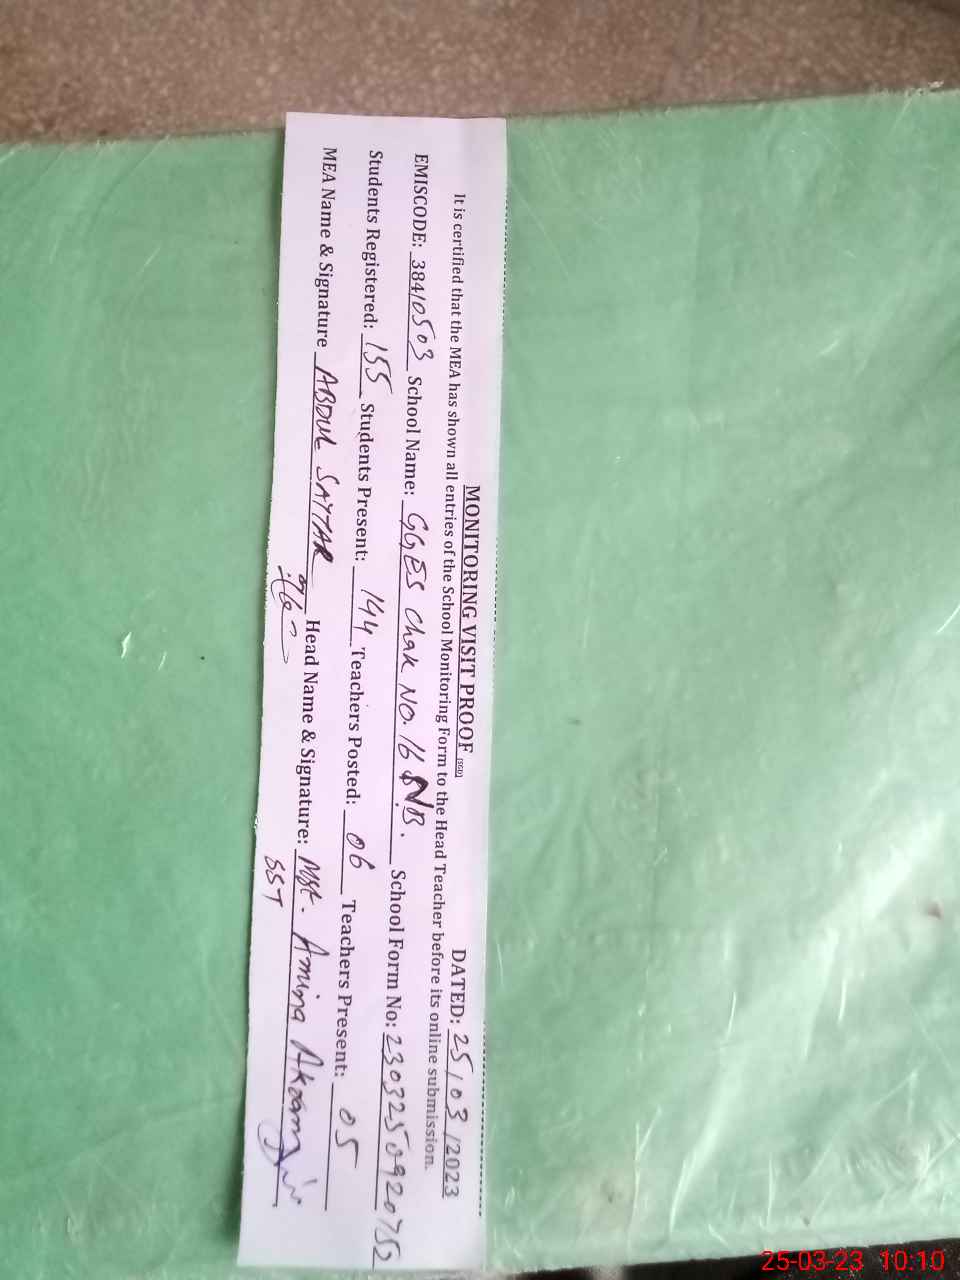 MONITORING VISIT PROOF (SGD) DATED: 25/03/2023
It is certified that the MEA has shown all entries of the School Monitoring Form to the Head Teacher before its online submission.
EMISCODE: 38410503 School Name: GGES Chak No. 16 NB. School Form No: 2303250920752
Students Registered: 155 Students Present: 144 Teachers Posted: 06 Teachers Present: 05
MEA Name & Signature ABDUL SATTAR Head Name & Signature: Mst. Amina Akram
SST
25-03-23 10:10